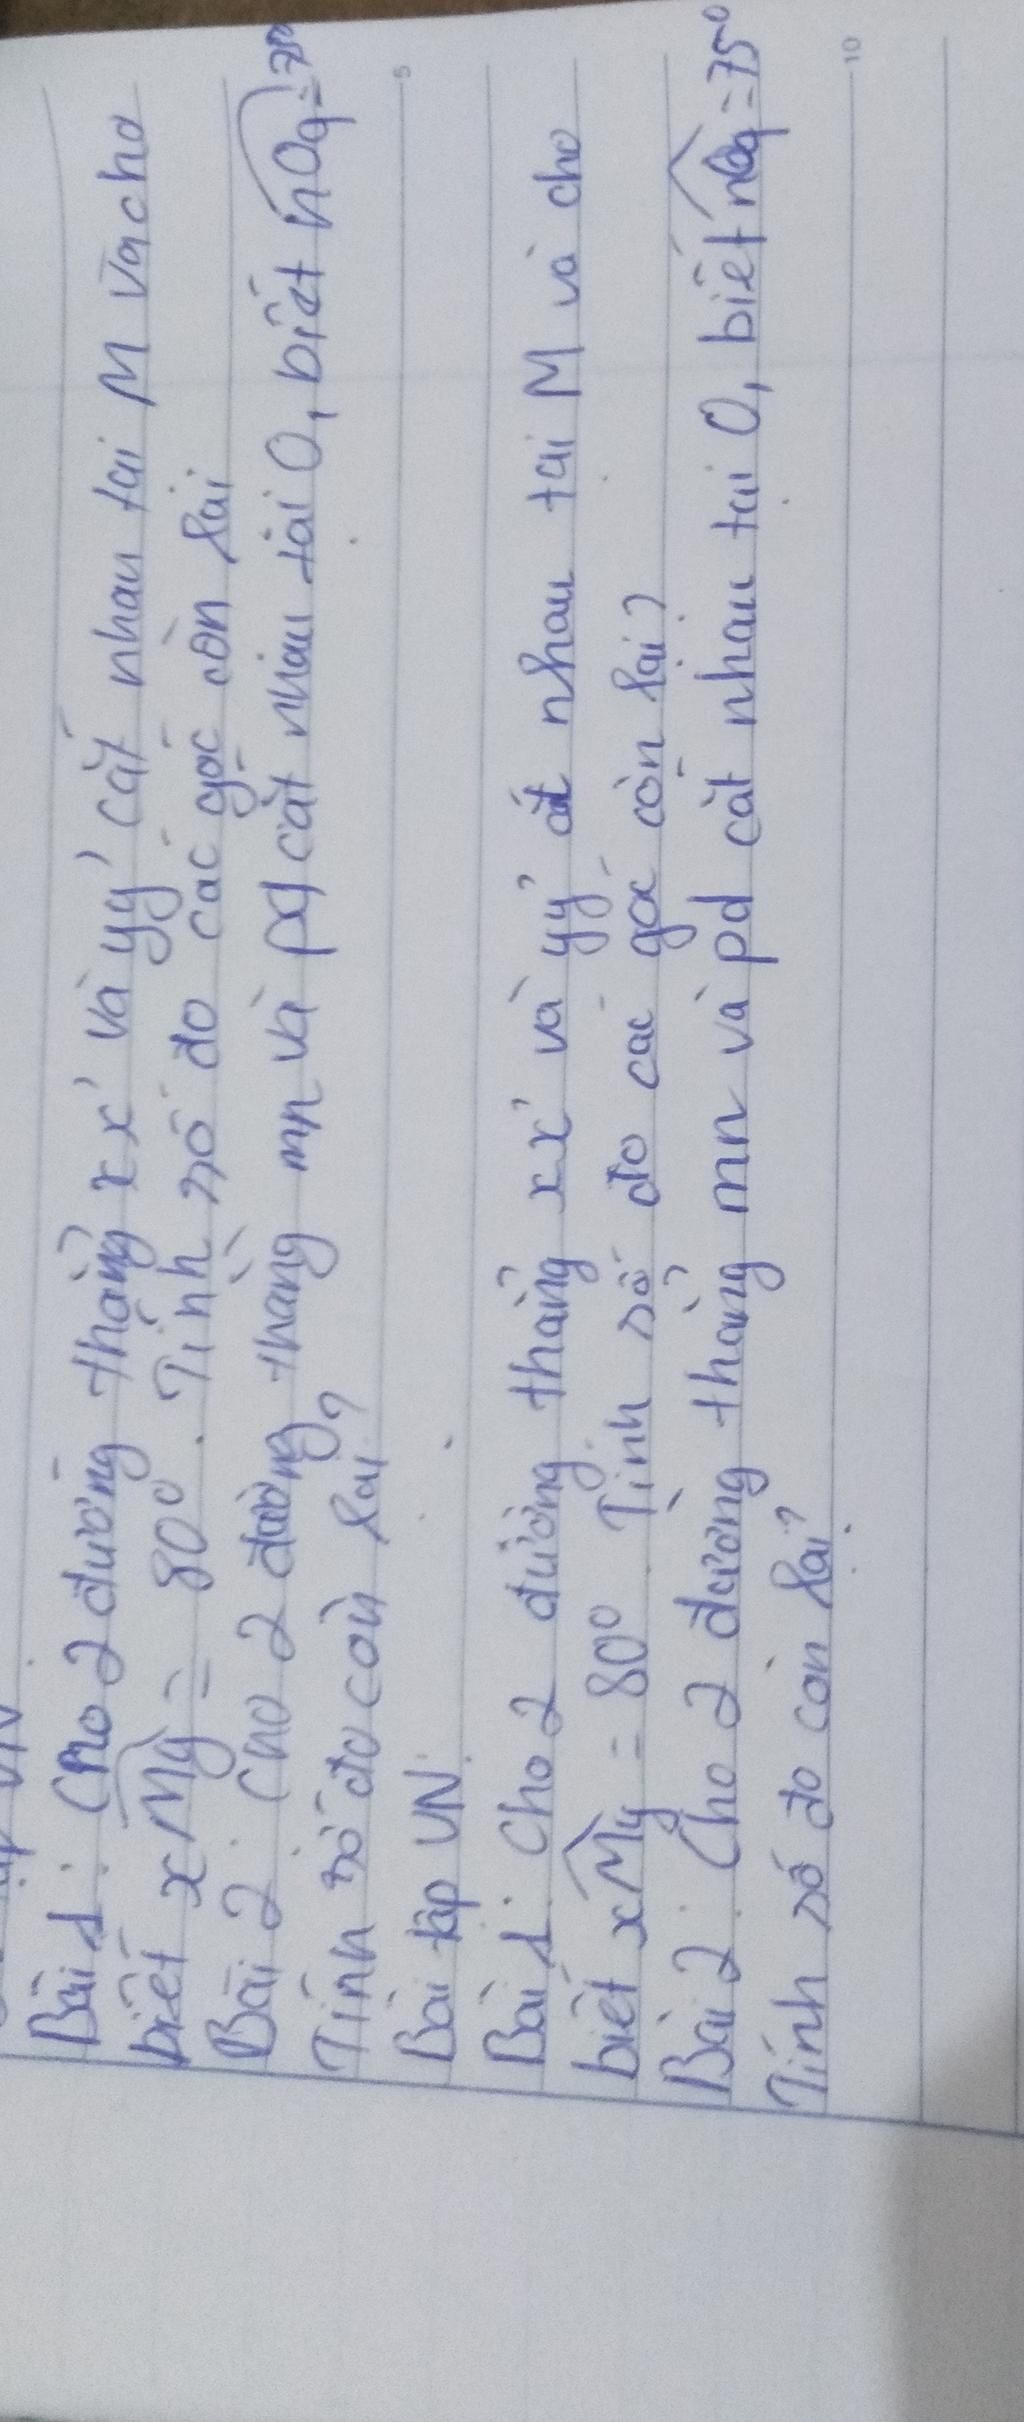 Bài 1: Cho 2 đường thẳng xx' và yy' cắt nhau tại M và cho
biết xMy = 80°. Tính số đo các góc còn lại
Bài 2: Cho 2 đường thẳng mn và pq cắt nhau tại O, biết nOq = 75°
Tính số đo còn lại?
Bài tập VN
Bài 1: Cho 2 đường thẳng xx' và yy' cắt nhau tại M và cho
biết xMy = 80° Tính số đo các góc còn lại?
Bài 2: Cho 2 đường thẳng mn và pd cắt nhau tại O, biết nOq = 75°
Tính số đo còn lại?
5
10